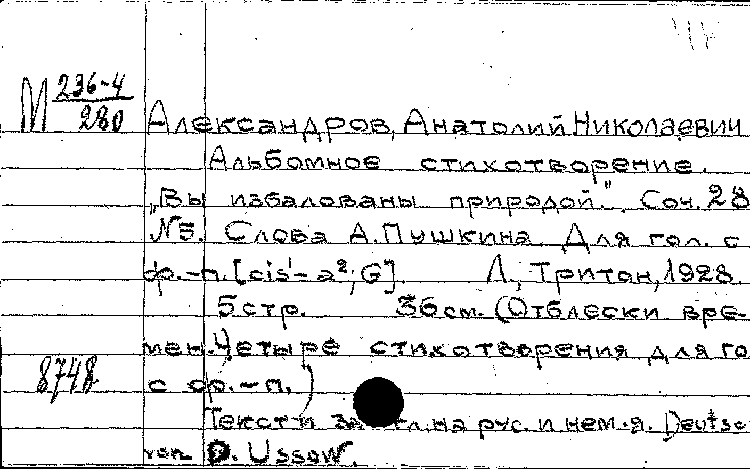 М 236-4/280
Александров, Анатолий Николаевич
Альбомное стихотворение.
„Вы избалованы природой.“ Соч. 28
№5. Слова А.Пушкина Для гол. с
ф.-п. [cis¹-a²; G]. Л., Тритон, 1928.
5 стр. 36 см. (Отблески вре-
мен. Четыре стихотворения для го
8748 с ф.-п.)
Текст и на рус. и нем. я. Deutsc
von D. Ussow.